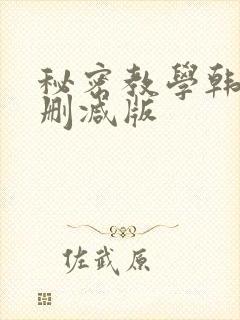 秘密教學韩
删减版
佐武原